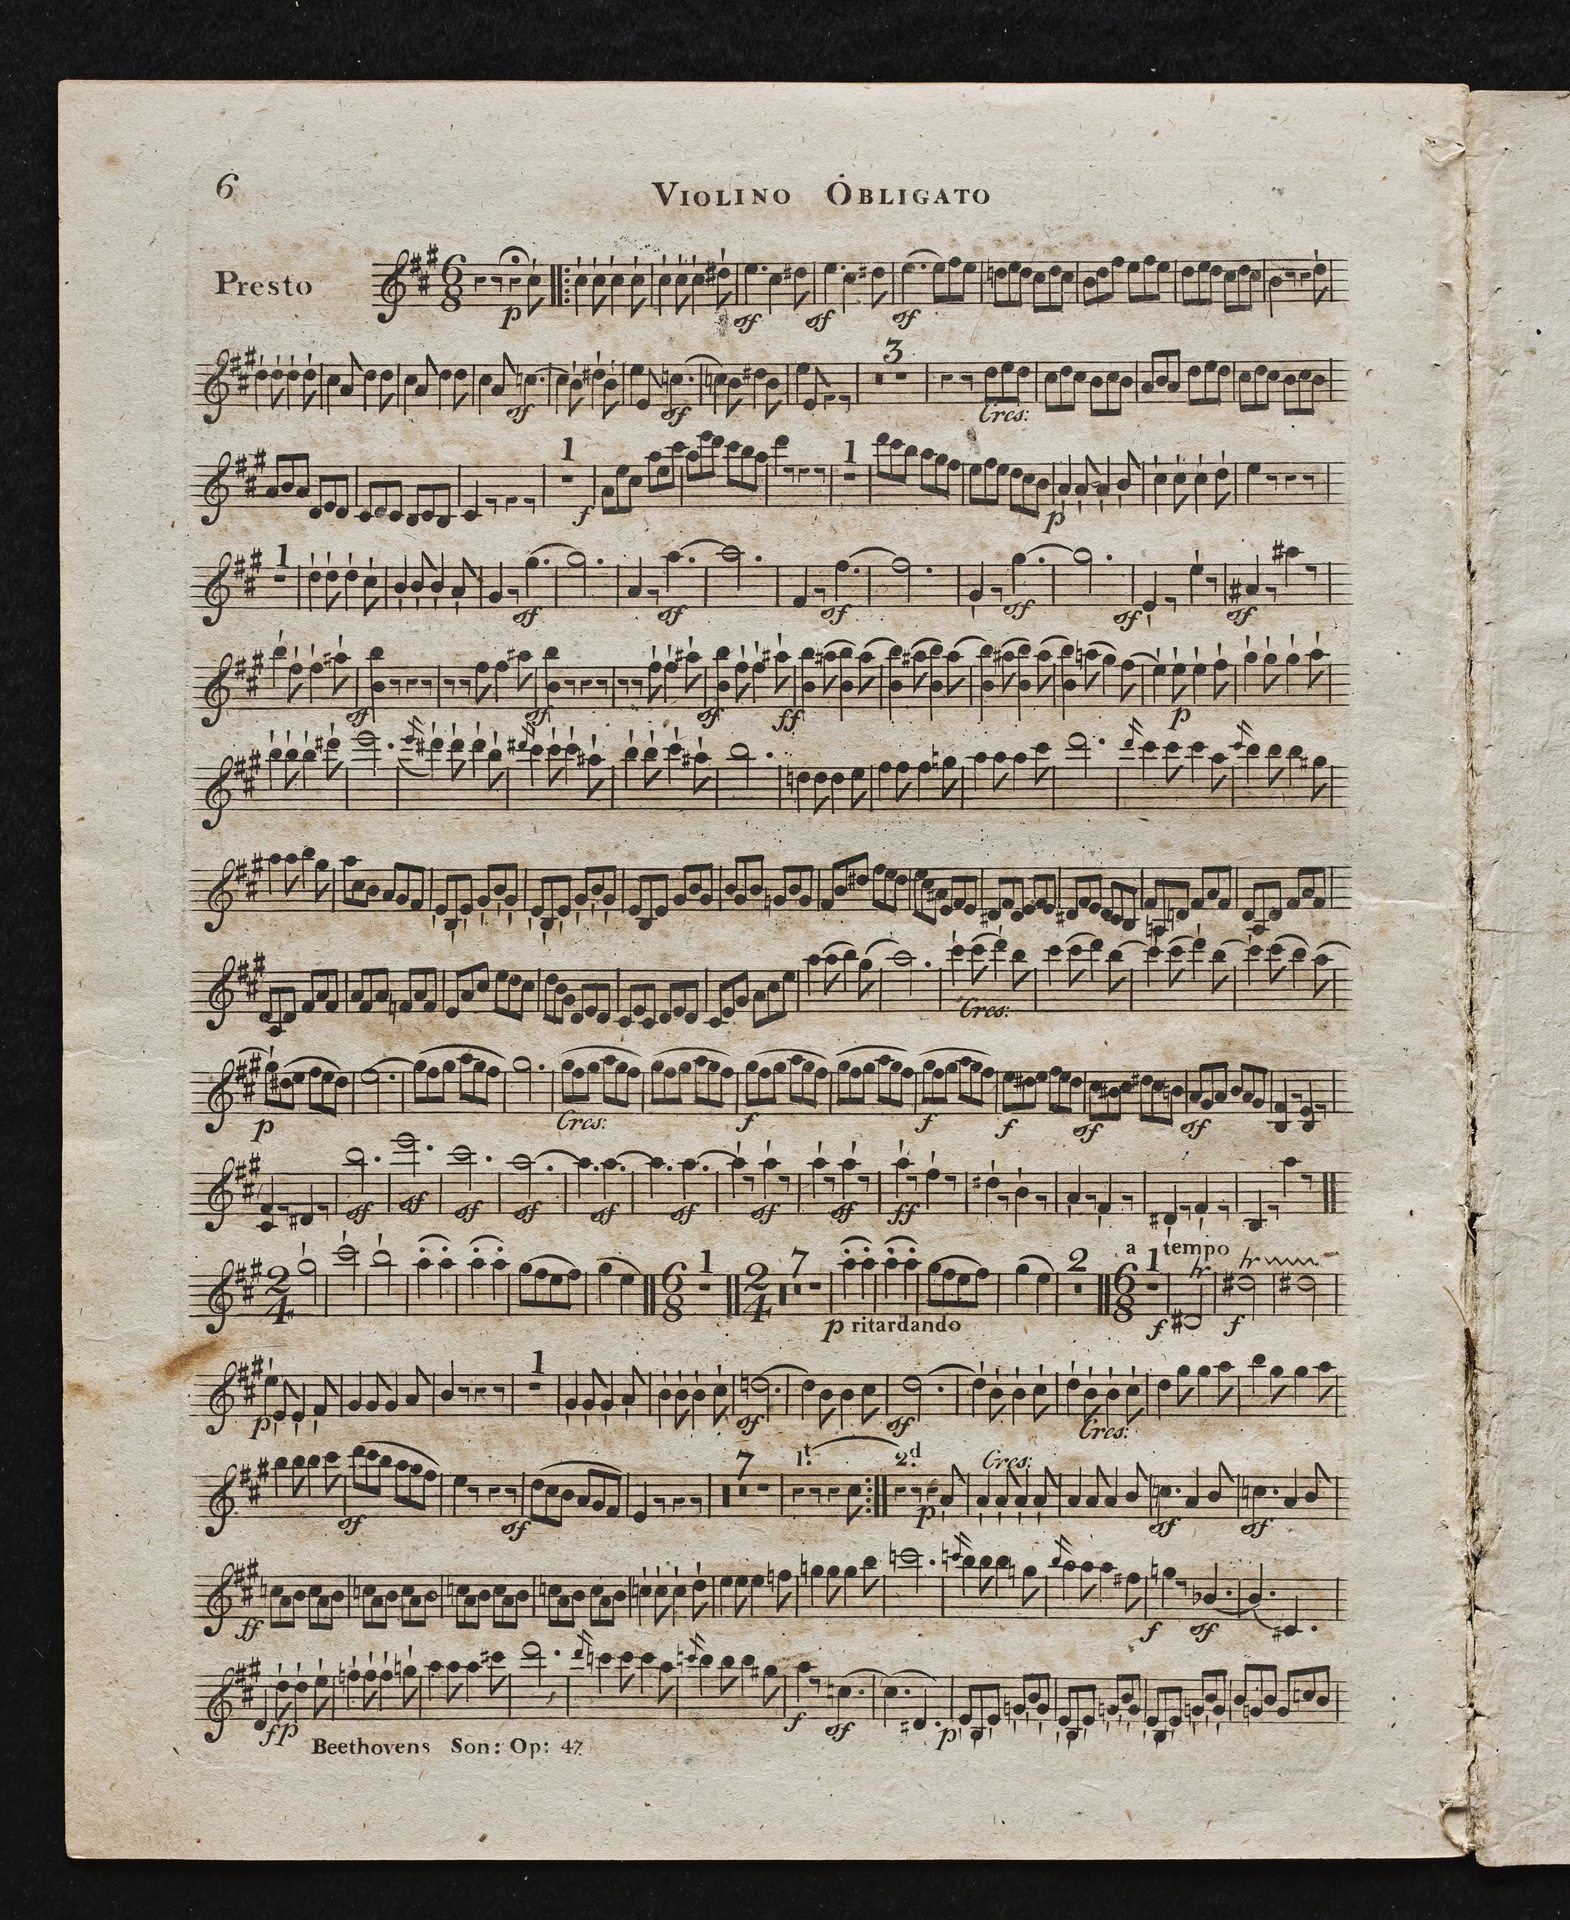 6
VIOLINO OBLIGATO
Presto
6 8 p sf sf sf
sf sf 3 Cres:
1 f 1 p
1 sf sf sf sf sf sf
sf sf sf ff p
Cres:
p Cres: f f f sf sf
sf sf sf sf sf sf sf sf ff
2 4 6 8 1 2 4 7 p ritardando 2 6 8 a tempo 1 f tr f tr
p 1 sf sf Cres:
sf sf 7 1t. 2d. p Cres: sf sf
ff f sf
fp f sf p
Beethovens Son: Op: 47.